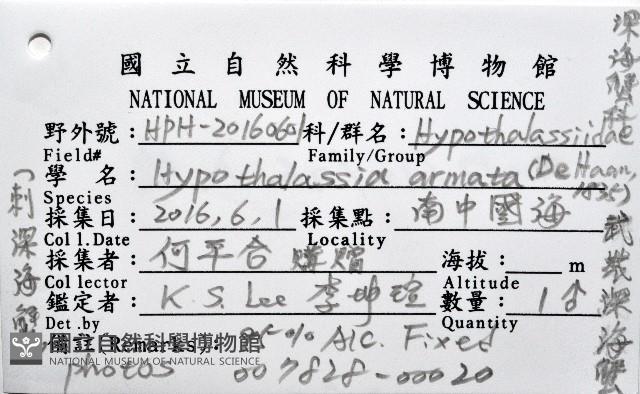 國立自然科學博物館
NATIONAL MUSEUM OF NATURAL SCIENCE
野外號: HPH-20160601 科/群名: Hypothalassiidae
Field# Family/Group
學 名: Hypothalassia armata (De Haan, 1835)
Species
採集日: 2016, 6, 1 採集點: 南中國海
Coll.Date Locality
採集者: 何平合 購贈 海拔: m
Collector Altitude
鑑定者: K.S. Lee 李坤瑄 數量: 1♂
Det.by Quantity
(Remarks): 95% Alc. Fixed
photos 007828-00020
國立自然科學博物館
NATIONAL MUSEUM OF NATURAL SCIENCE
深海蟹科
武裝深海蟹
(刺深海蟹